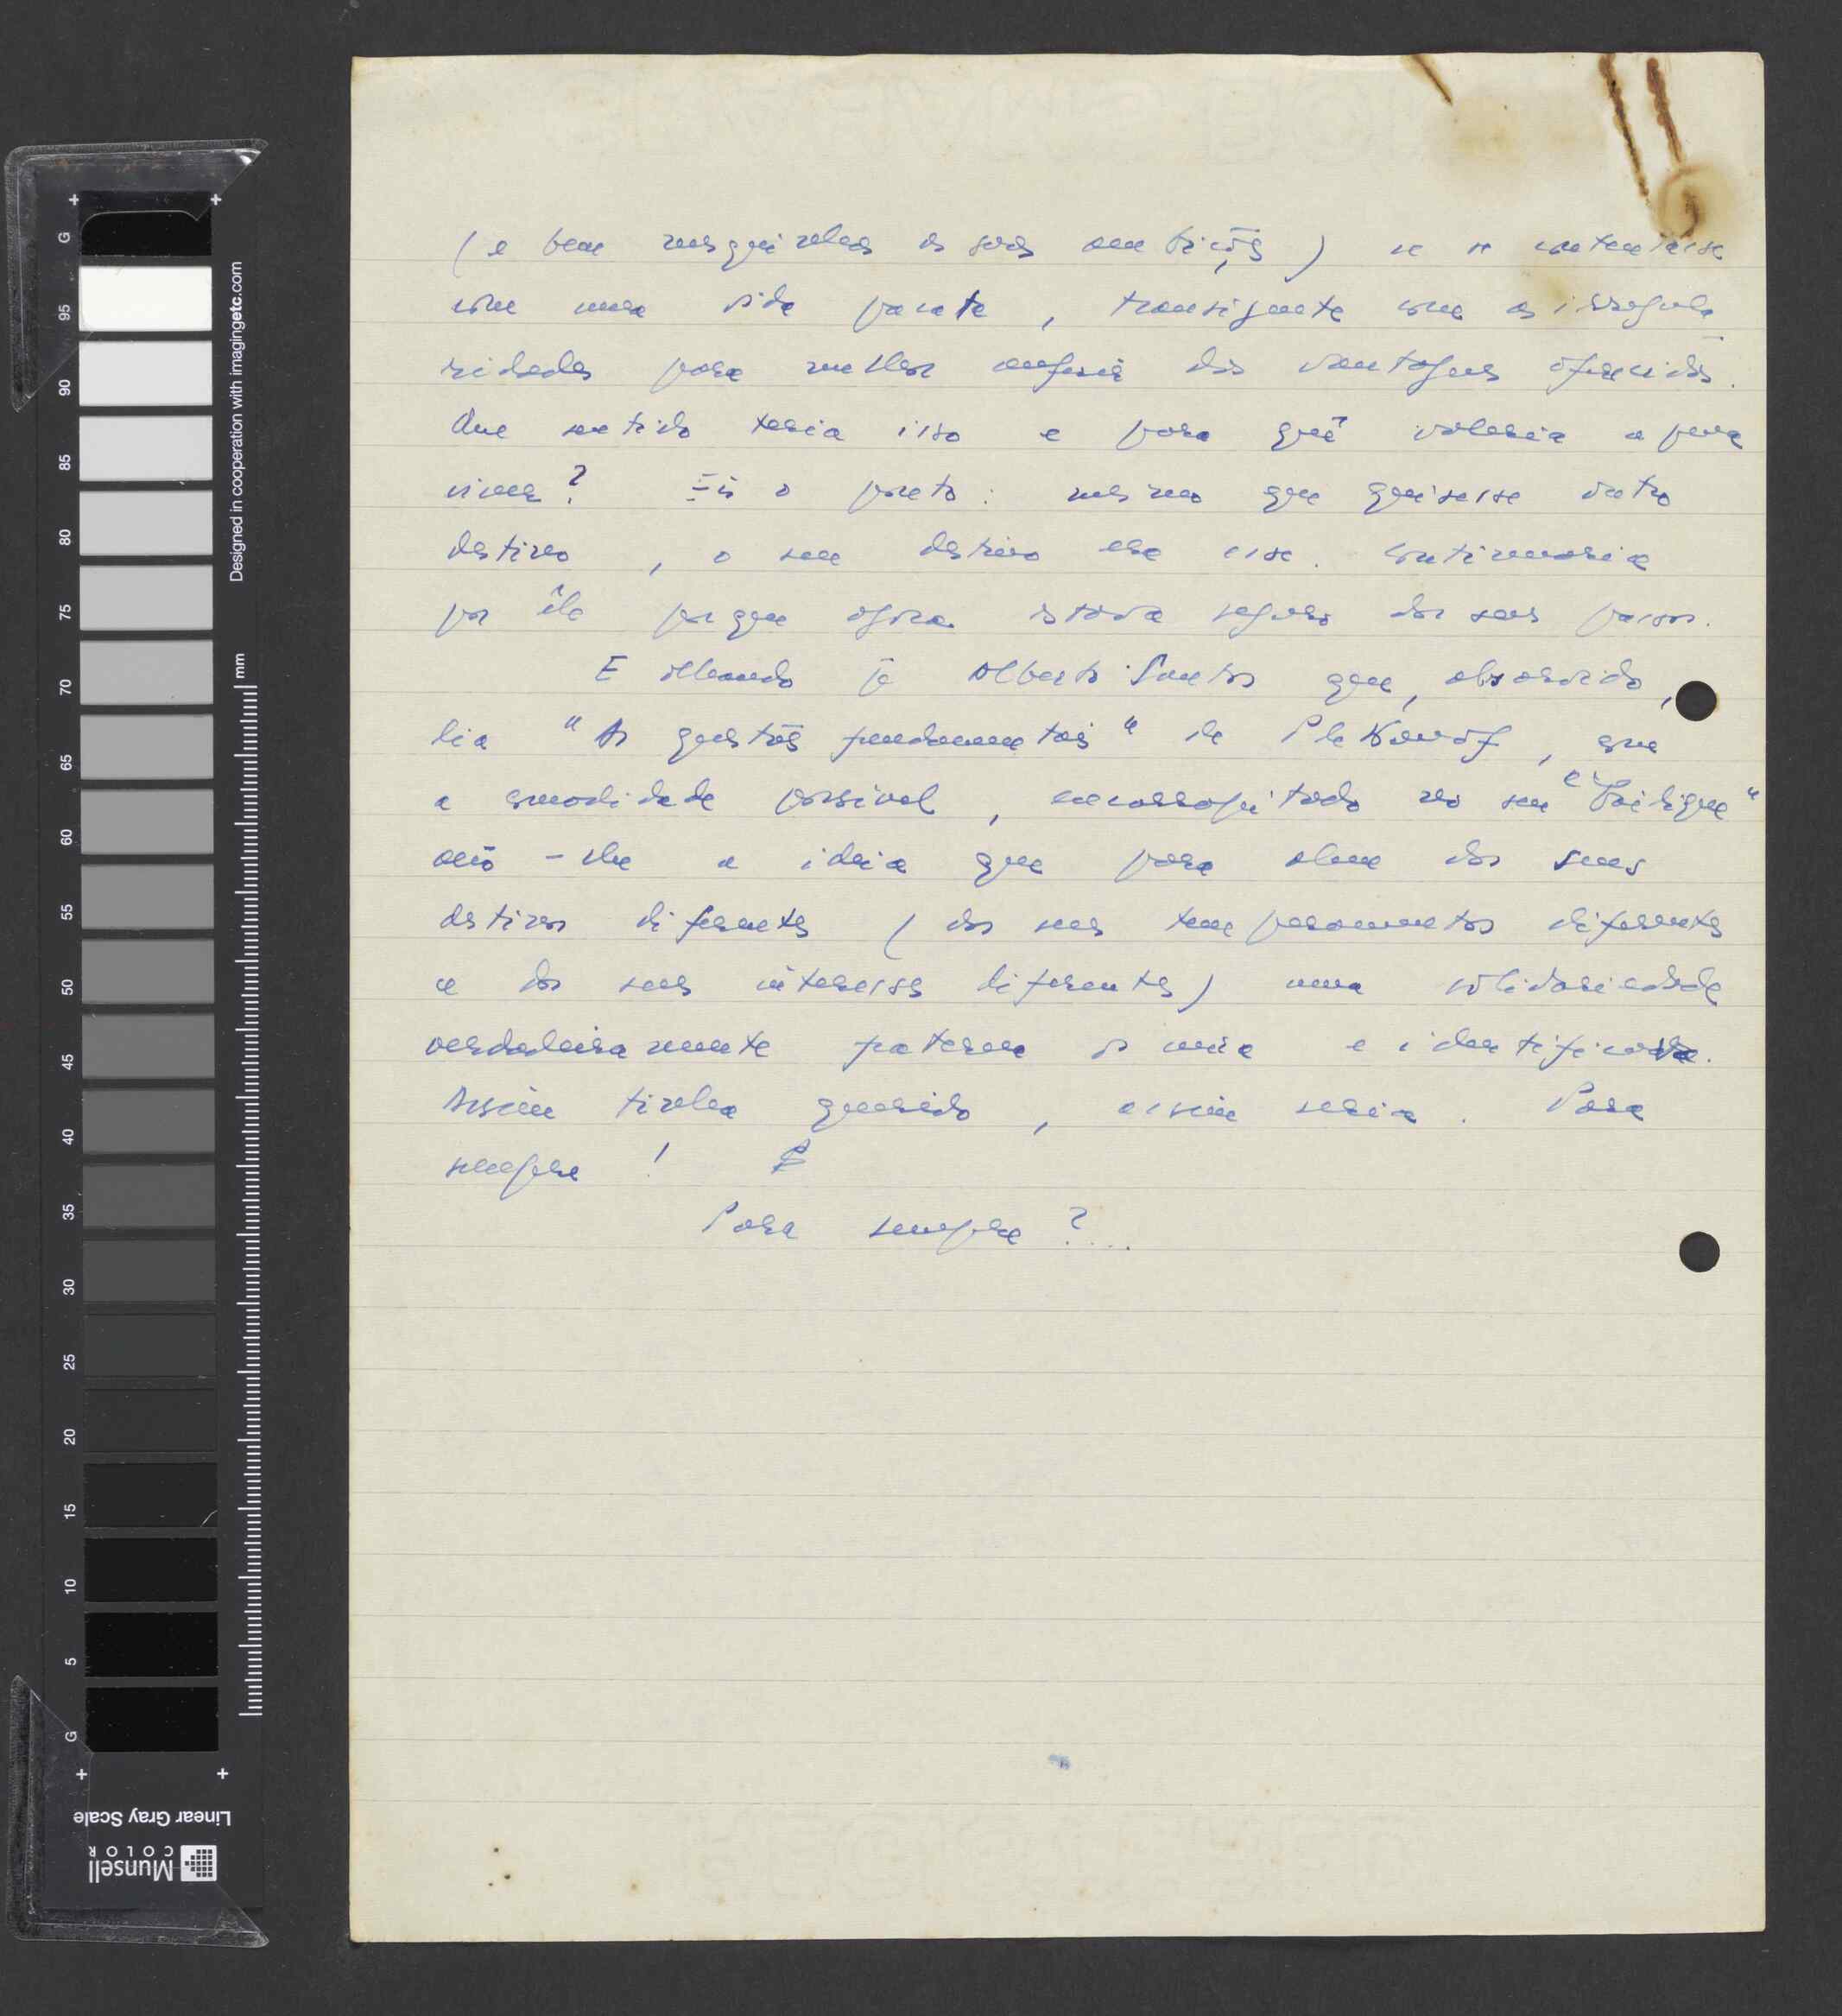 (e bem mesquinhas as suas ambições) e se contentasse
com uma vida pacata, transigente com as irregula
ridades para melhor auferir das vantagens oferecidas.
Que sentido teria isso e para quê valeria a pena
viver? Eis o ponto: mesmo que quisesse outro
destino, o seu destino era esse. Continuaria
por êle porque agora estava seguro dos seus passos.
E olhando p/ Alberto Santos que, absorvido,
lia "As questões fundamentais" de Plekanof, com
a comodidade possível, encarapitado no seu "beliche"
veio-lhe a ideia que para alem dos seus
destinos diferentes (dos seus temperamentos diferentes
e dos seus interesses diferentes) uma solidariedade
verdadeiramente fraterna os unia e identificava.
Assim tinha querido, assim seria. Para
sempre!
Para sempre?....
Designed in cooperation with imagingetc.com
mm
G 95 90 85 80 75 70 65 60 55 50 45 40 35 30 25 20 15 10 5 G
Linear Gray Scale
Munsell
COLOR